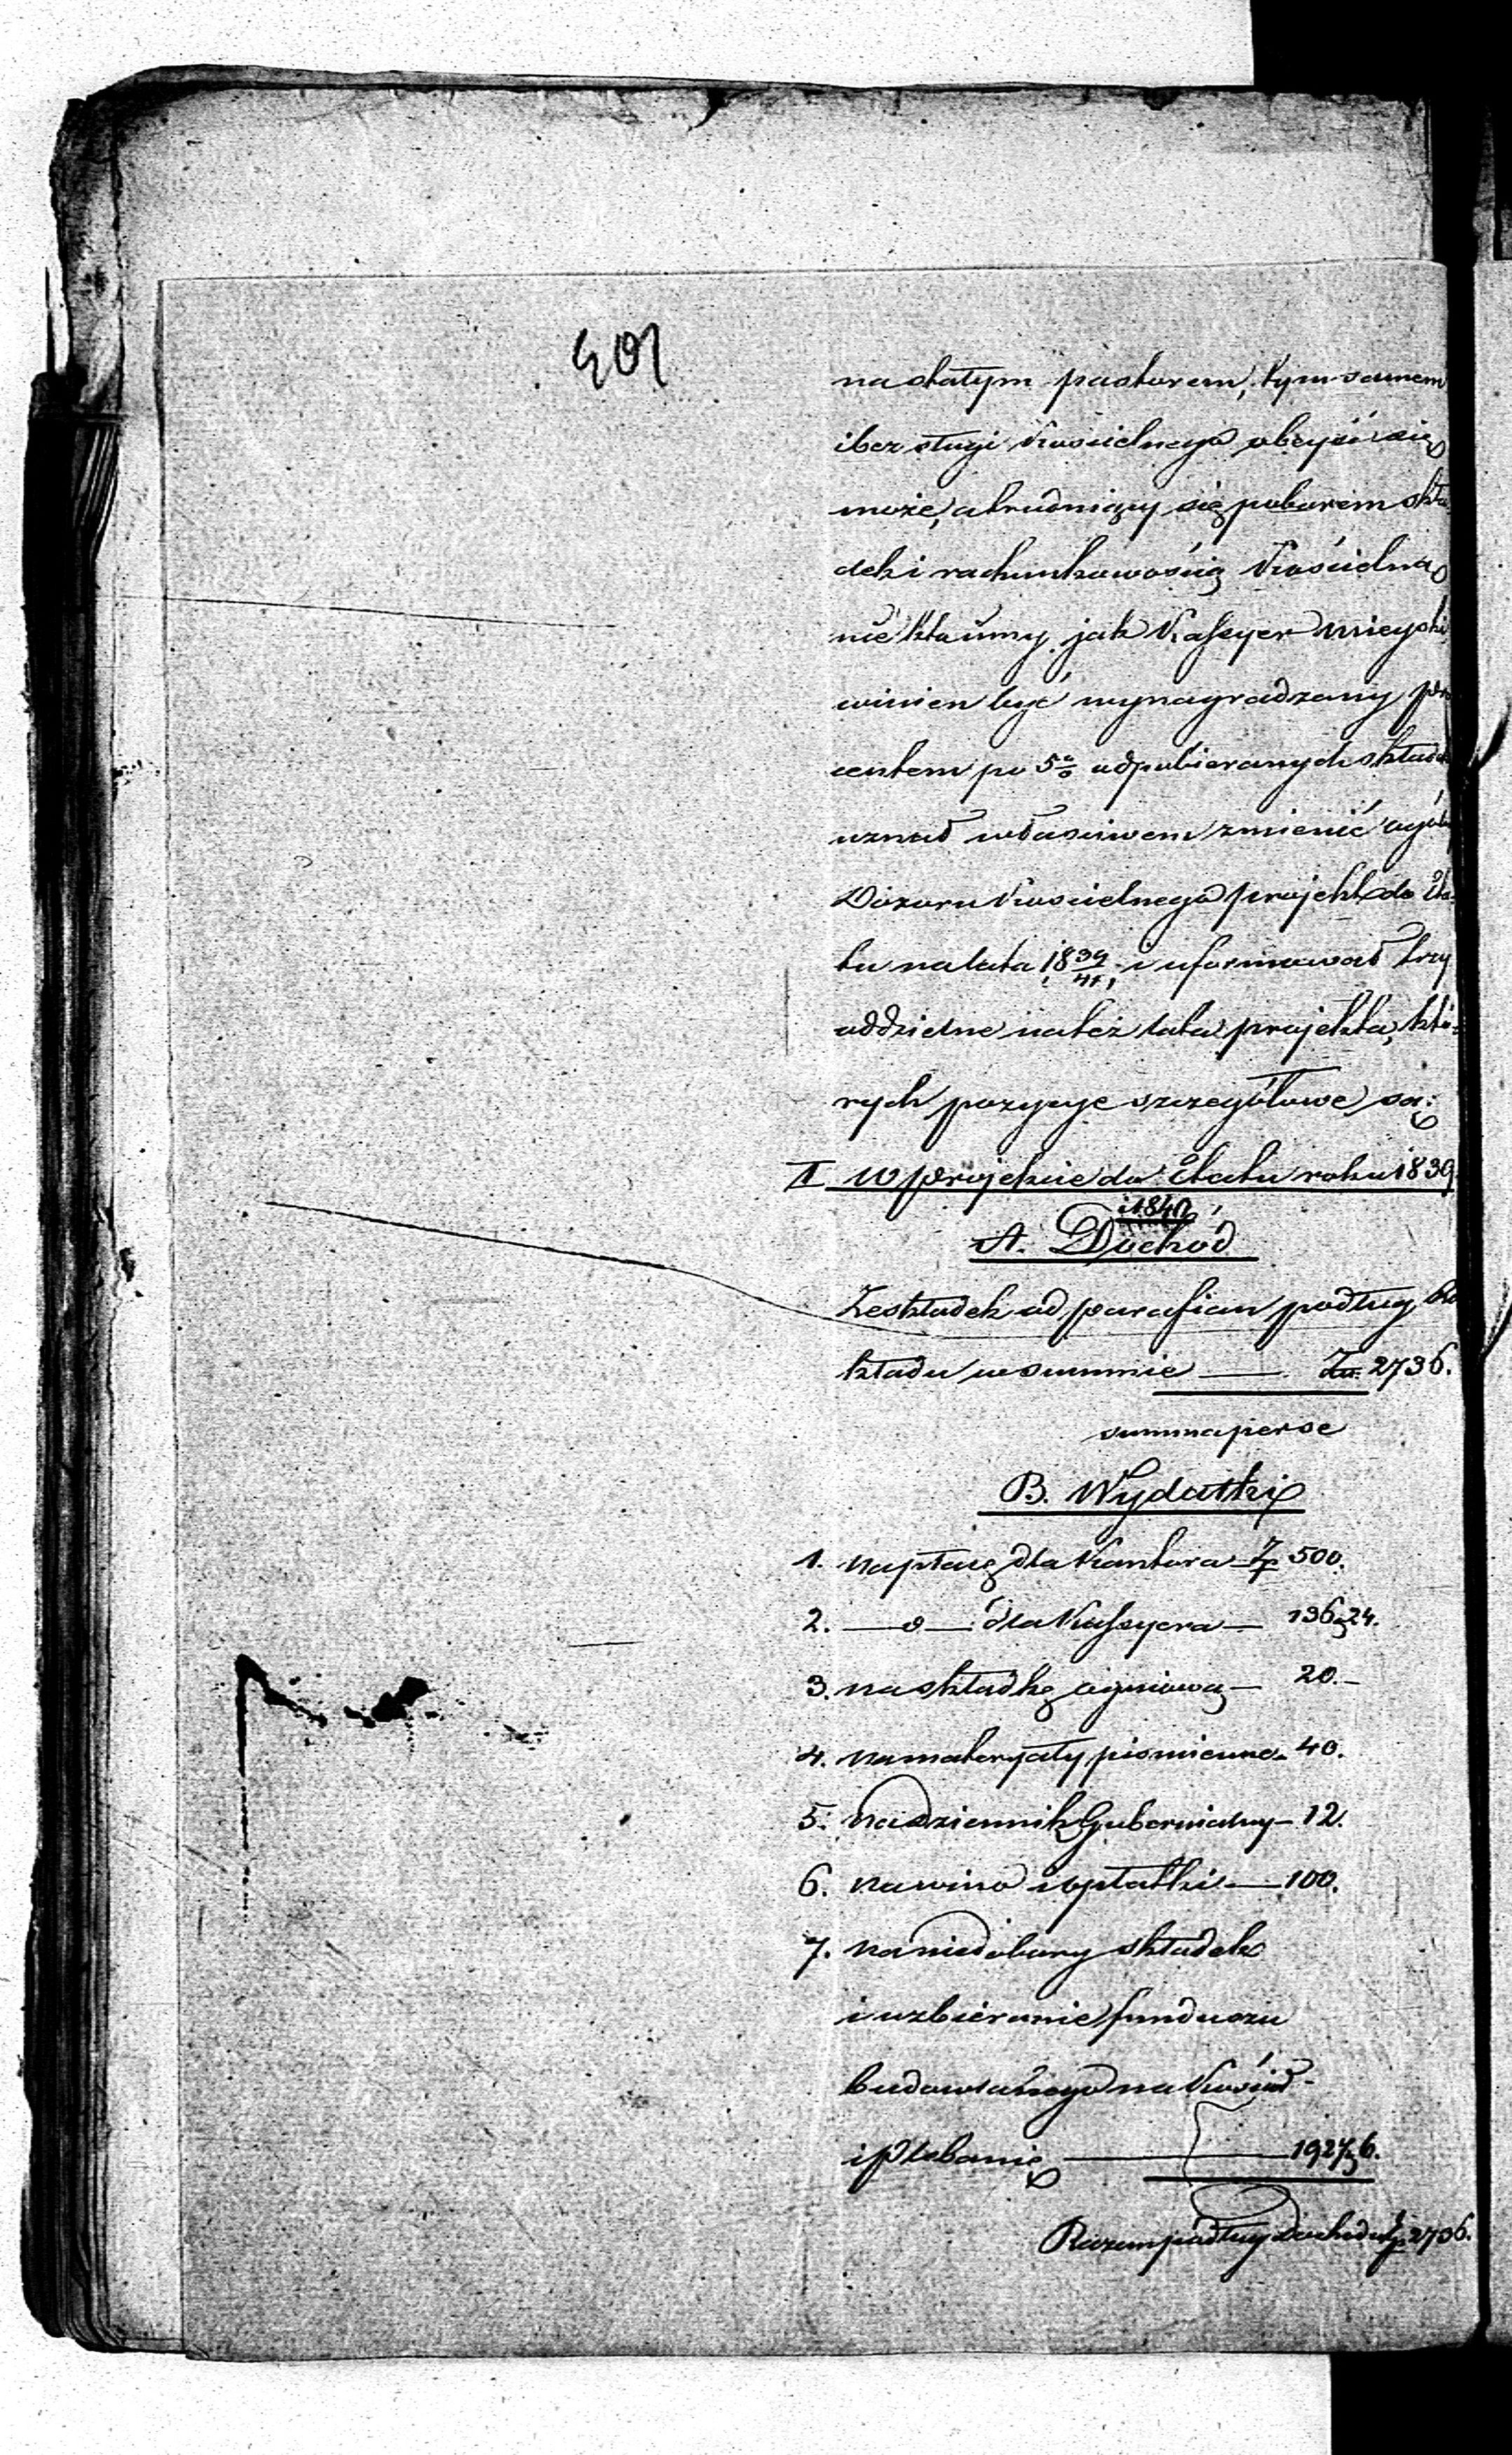 401
na stałym pastorem, tym samem
i bez sługi Kościelnego obeyść się
może, a trudniący się poborem skła
dek i rachunkowością Kościelną
nie tłaumy jak Kassyer mieyski
winien być wynagradzany pro
centem po 5% od pobieranych składek
uznał właściwem zmienić
Dozoru Kościelnego projekt do Eta-
tu na lata 18 39/41, i uformował trzy
oddzielne na też lata projekta, któ-
rych pozycye szczegółowe są:
II w projekcie do Etatu roku 1839
i 1840
A. Dochód
Ze składek od parafian podług
kładu w summie — Zł. 2736.
summa per se
B. Wydatki
1. na płacę dla Kantora Zp 500.
2. — o — dla Kassyera — 136 g 24.
3. na składkę ogniową — 20. —
4. na materyały piśmienne 40.
5. na dziennik Gubernialny — 12.
6. na wino i opłatki — 100.
7. na niedobory składek
i uzbieranie funduszu
budowlanego na Kościoł
i Plebanię — 1927 g 6.
Razem podług dochodu Zp 2736.